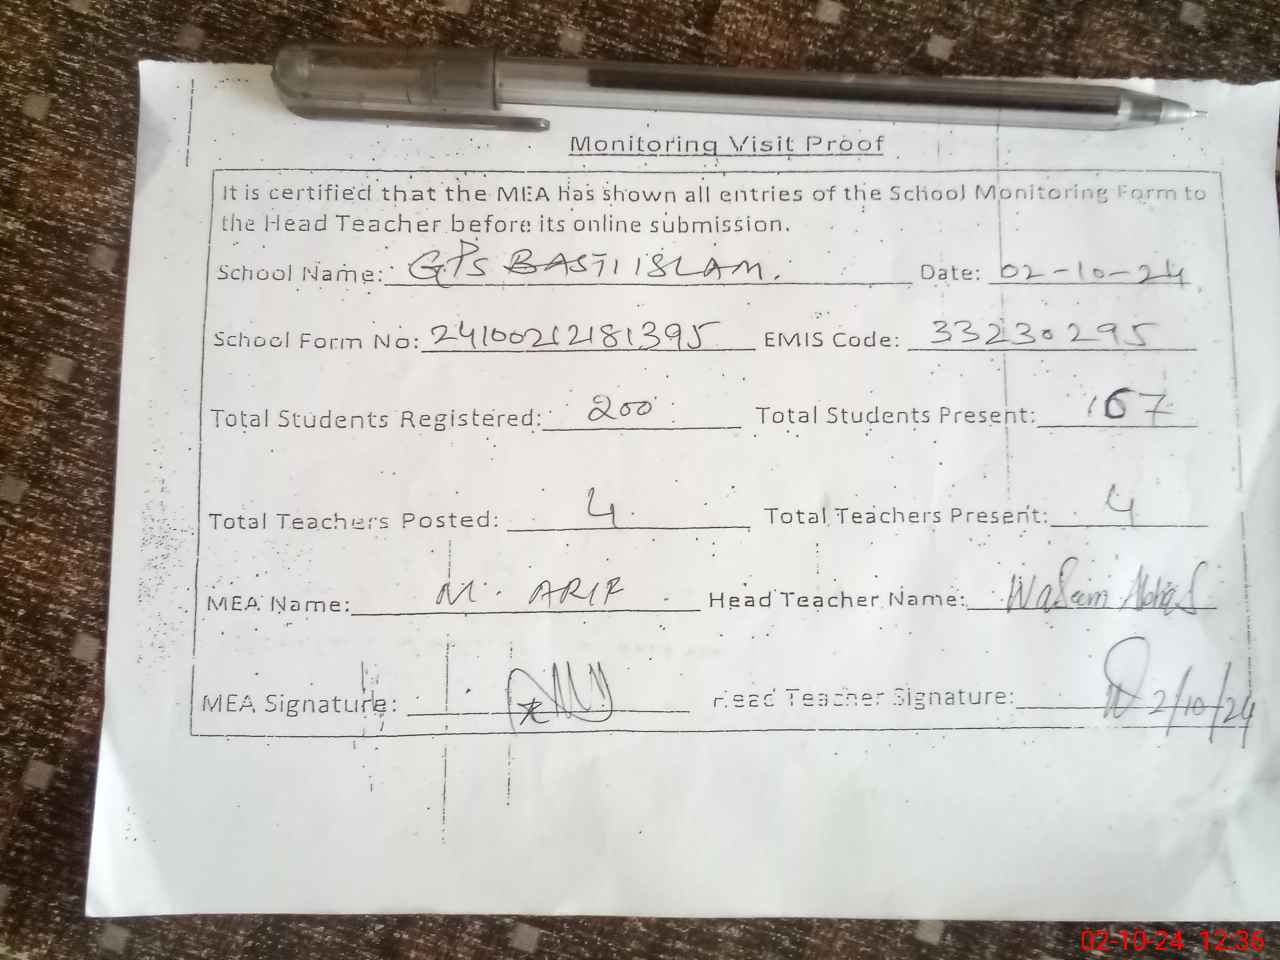 Monitoring Visit Proof
It is certified that the MEA has shown all entries of the School Monitoring Form to
the Head Teacher before its online submission.
School Name: GPS BASTI ISLAM. Date: 02-10-24
School Form No: 24100212181395 EMIS Code: 33230295
Total Students Registered: 200 Total Students Present: 167
Total Teachers Posted: 4 Total Teachers Present: 4
MEA Name: M. ARIF Head Teacher Name: Waseem Abbas
MEA Signature: Head Teacher Signature: 2/10/24
02-10-24 12:36